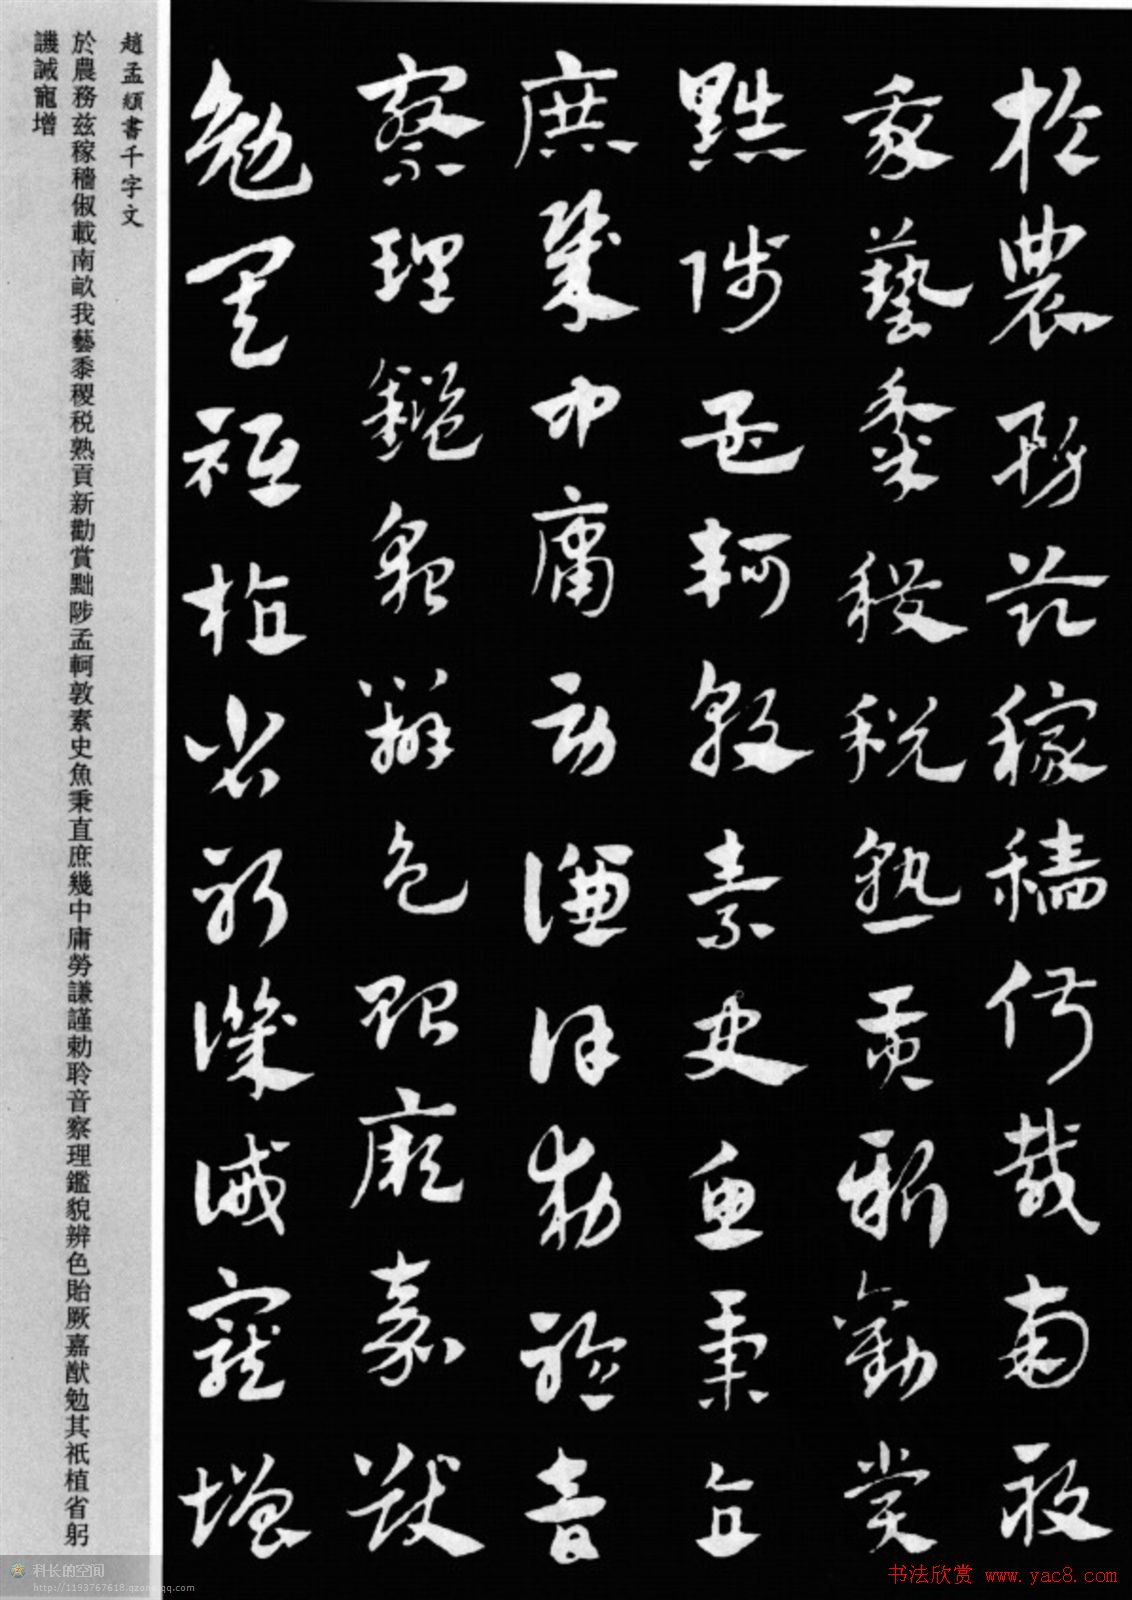 於農務茲稼穡俶載南畝
我藝黍稷稅熟貢新勸賞
黜陟孟軻敦素史魚秉直
庶幾中庸勞謙謹勑聆音
察理鑑貌辨色貽厥嘉猷
勉其祗植省躬譏誡寵增
趙孟頫書千字文
於農務茲稼穡俶載南畝我藝黍稷稅熟貢新勸賞黜陟孟軻敦素史魚秉直庶幾中庸勞謙謹勑聆音察理鑑貌辨色貽厥嘉猷勉其祗植省躬
譏誡寵增
科长的空间
http://1193767618.qzone.qq.com
书法欣赏 www.yac8.com